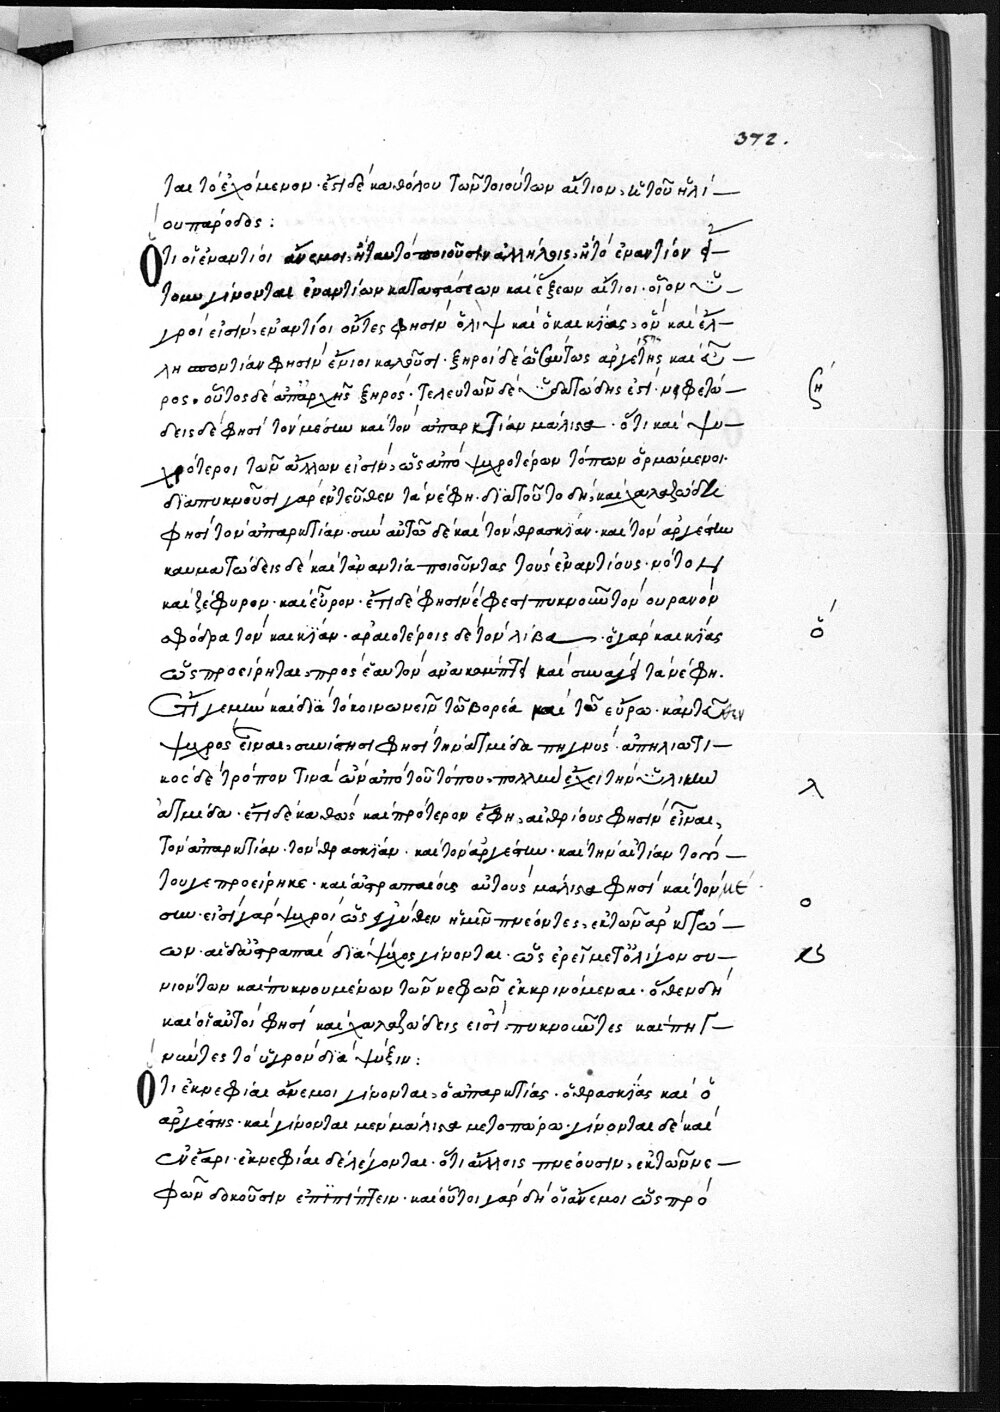 372.
ται τὸ ἐχόμενον· ἔστι δὲ καθόλου τῶν τοιούτων αἴτιον, ἡ τοῦ ἡλί—
ου πάροδος:
Ὅτι οἱ ἐναντίοι ἄνεμοι, ἢ ταυτὸ ποιοῦσιν ἀλλήλοις, ἢ τὸ ἐναντίον
γίνονται ἐναντίων καταστάσεων καὶ ἕξεων αἴτιοι· οἷον ὑ—
γροί εἰσιν, ἐναντίοι ὄντες φησὶν ὁ λὶψ καὶ ὁ καικίας, ὃν καὶ ἑλ—
λησποντίαν φησὶν ἔνιοι καλοῦσι· ξηροὶ δὲ ὡσαύτως ἀργέστης καὶ εὖ—
ρος· οὗτος δὲ ἀπ' ἀρχῆς ξηρός· τελευτῶν δὲ ὑδατώδης ἐστί· νιφετώ—
ζη
δεις δέ φησι τὸν μέσην καὶ τὸν ἀπαρκτίαν μάλιστα· ὅτι καὶ ψυ—
χρότεροι τῶν ἄλλων εἰσίν, ὡς ἀπὸ ψυχροτέρων τόπων ὁρμώμενοι·
διαπυκνοῦσι γὰρ ἐντεῦθεν τὰ νέφη· διὰ τοῦτο δὴ, καὶ χαλαζώδη
φησὶ τὸν ἀπαρκτίαν· σὺν αὐτῷ δὲ καὶ τὸν θρασκίαν· καὶ τὸν ἀργέστην
καυματώδεις δὲ καὶ τἀναντία ποιοῦντας τοὺς ἐναντίους· νότον
καὶ ζέφυρον· καὶ εὖρον· ἔτι δέ φησι νέφεσι πυκνοῦν τὸν οὐρανὸν
σφόδρα τὸν καικίαν· ἀραιοτέροις δὲ τὸν λίβα· ὁ γὰρ καικίας
ὁ
ὡς προείρηται, πρὸς ἑαυτὸν ἀνακάμπτει καὶ συνάγει τὰ νέφη.
Ἔτι γε μὴν καὶ διὰ τὸ κοινωνεῖν τῷ βορέᾳ καὶ τῷ εὔρῳ· κἀντεῦθεν
ψυχρὸς εἶναι, συνίστησι φησὶ τὴν ἀτμίδα πηγνύς· ἀπηλιωτι—
κὸς δὲ τρόπον τινὰ ὢν ἀπὸ τοῦ τόπου, πολλὴν ἔχει τὴν ὑλικὴν
λ
ἀτμίδα· ἔτι δὲ καθὼς καὶ πρότερον ἔφη, αἰθρίους φησὶν εἶναι,
τὸν ἀπαρκτίαν· τὸν θρασκίαν· καὶ τὸν ἀργέστην· καὶ τὴν αἰτίαν τού—
του γε προείρηκε· καὶ ἀστραπαίους αὐτοὺς μάλιστα φησὶ καὶ τὸν μέ
ο
σην· εἰσὶ γὰρ ψυχροὶ ὡς ἐγγύθεν ἡμῖν πνέοντες, ἐκ τῶν ἀρκτώ—
ων· αἱ δ' ἀστραπαὶ διὰ ψύχος γίνονται· ὡς ἐρεῖ μετ' ὀλίγον συ—
νιόντων καὶ πυκνουμένων τῶν νεφῶν ἐκκρινόμεναι· ὅθεν δὴ
καὶ οἱ αὐτοὶ φησὶ καὶ χαλαζώδεις εἰσὶ· πυκνοῦντες καὶ πηγ—
νύντες τὸ ὑγρὸν διὰ ψύξιν:
Ὅτι ἐκνεφίαι ἄνεμοι γίνονται, ὁ ἀπαρκτίας· ὁ θρασκίας καὶ ὁ
ἀργέστης· καὶ γίνονται μὲν μάλιστα μετοπώρῳ· γίνονται δὲ καὶ
ἐν ἔαρι· ἐκνεφίαι δὲ λέγονται· ὅτι ἄλλοις πνέουσιν, ἐκ τῶν νε—
φῶν δοκοῦσιν ἐπιπίπτειν· καὶ οὗτοι γὰρ δὴ οἱ ἄνεμοι ὡς πρὸ